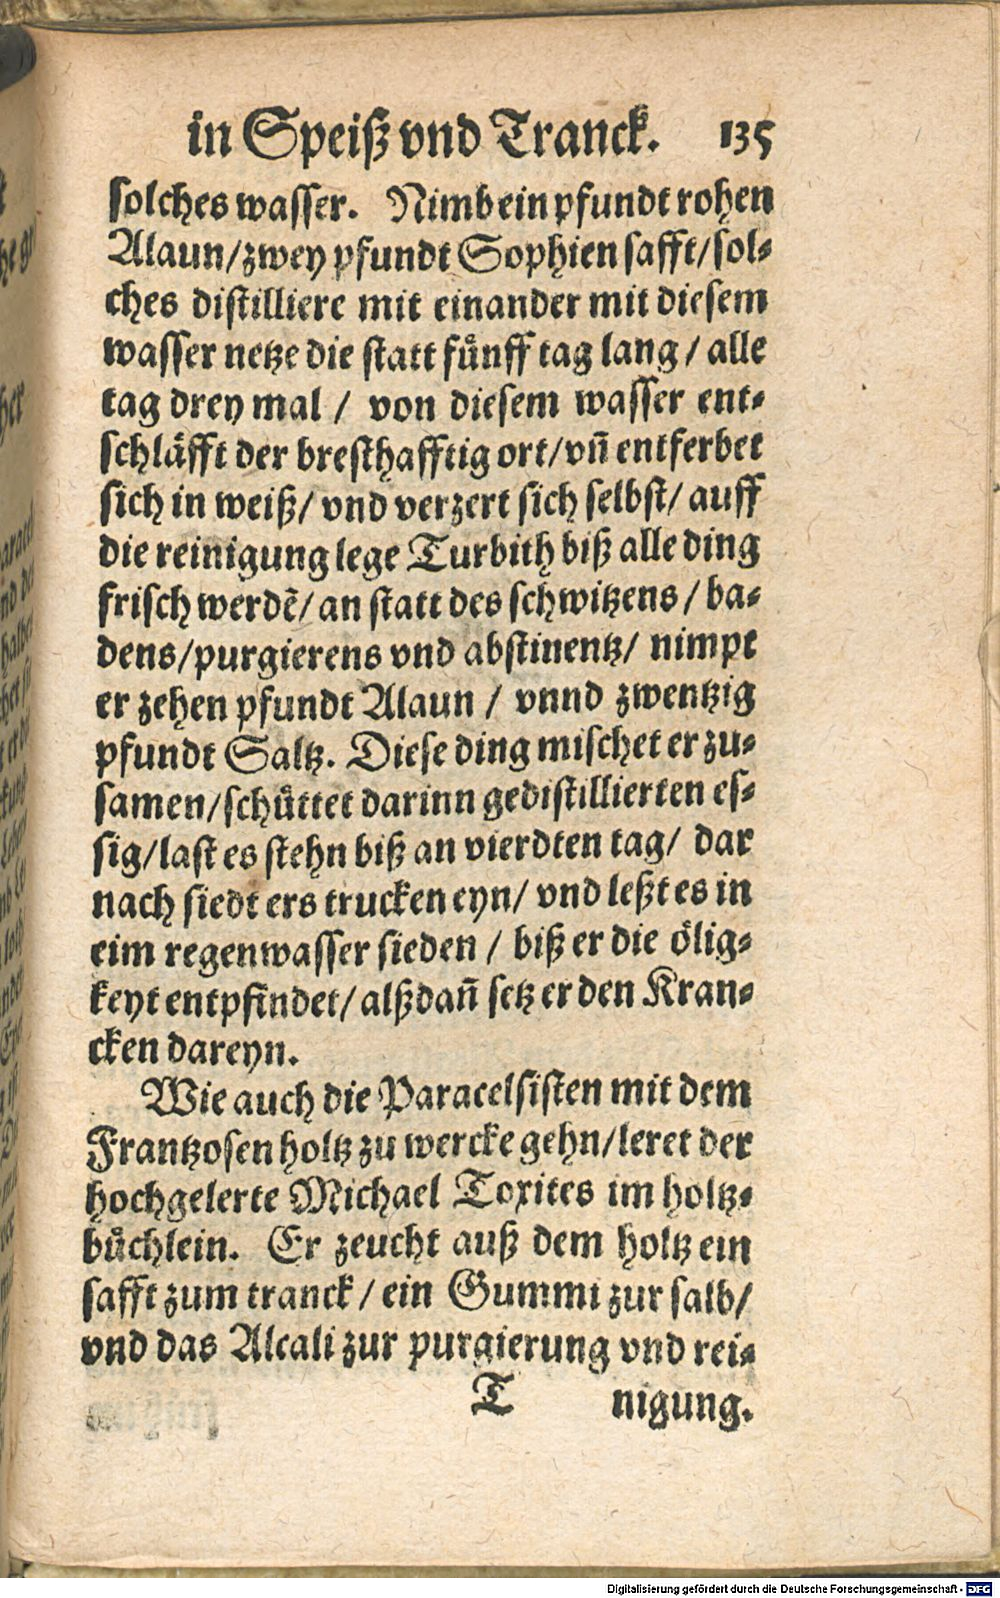 in Speiß vnd Tranck. 135
solches wasser. Nimb ein pfundt rohen
Alaun/zwey pfundt Sophien safft/sol-
ches distilliere mit einander mit diesem
wasser netze die statt fuͤnff tag lang / alle
tag drey mal / von diesem wasser ent-
schlaͤfft der bresthafftig ort/vñ entferbet
sich in weiß/ vnd verzert sich selbst/ auff
die reinigung lege Turbith biß alle ding
frisch werdē/ an statt des schwitzens / ba-
dens/purgierens vnd abstinentz/ nimpt
er zehen pfundt Alaun / vnnd zwentzig
pfundt Saltz. Diese ding mischet er zu-
samen/schuͤttet darinn gedistillierten es-
sig/last es stehn biß an vierdten tag/ dar
nach siedt ers trucken eyn/ vnd leßt es in
eim regenwasser sieden / biß er die oͤlig-
keyt entpfindet/alßdañ setz er den Kran-
cken dareyn.
Wie auch die Paracelsisten mit dem
Frantzosen holtz zu wercke gehn/leret der
hochgelerte Michael Toxites im holtz-
buͤchlein. Er zeucht auß dem holtz ein
safft zum tranck / ein Gummi zur salb/
vnd das Alcali zur purgierung vnd rei-
T nigung.
Digitalisierung gefördert durch die Deutsche Forschungsgemeinschaft - DFG